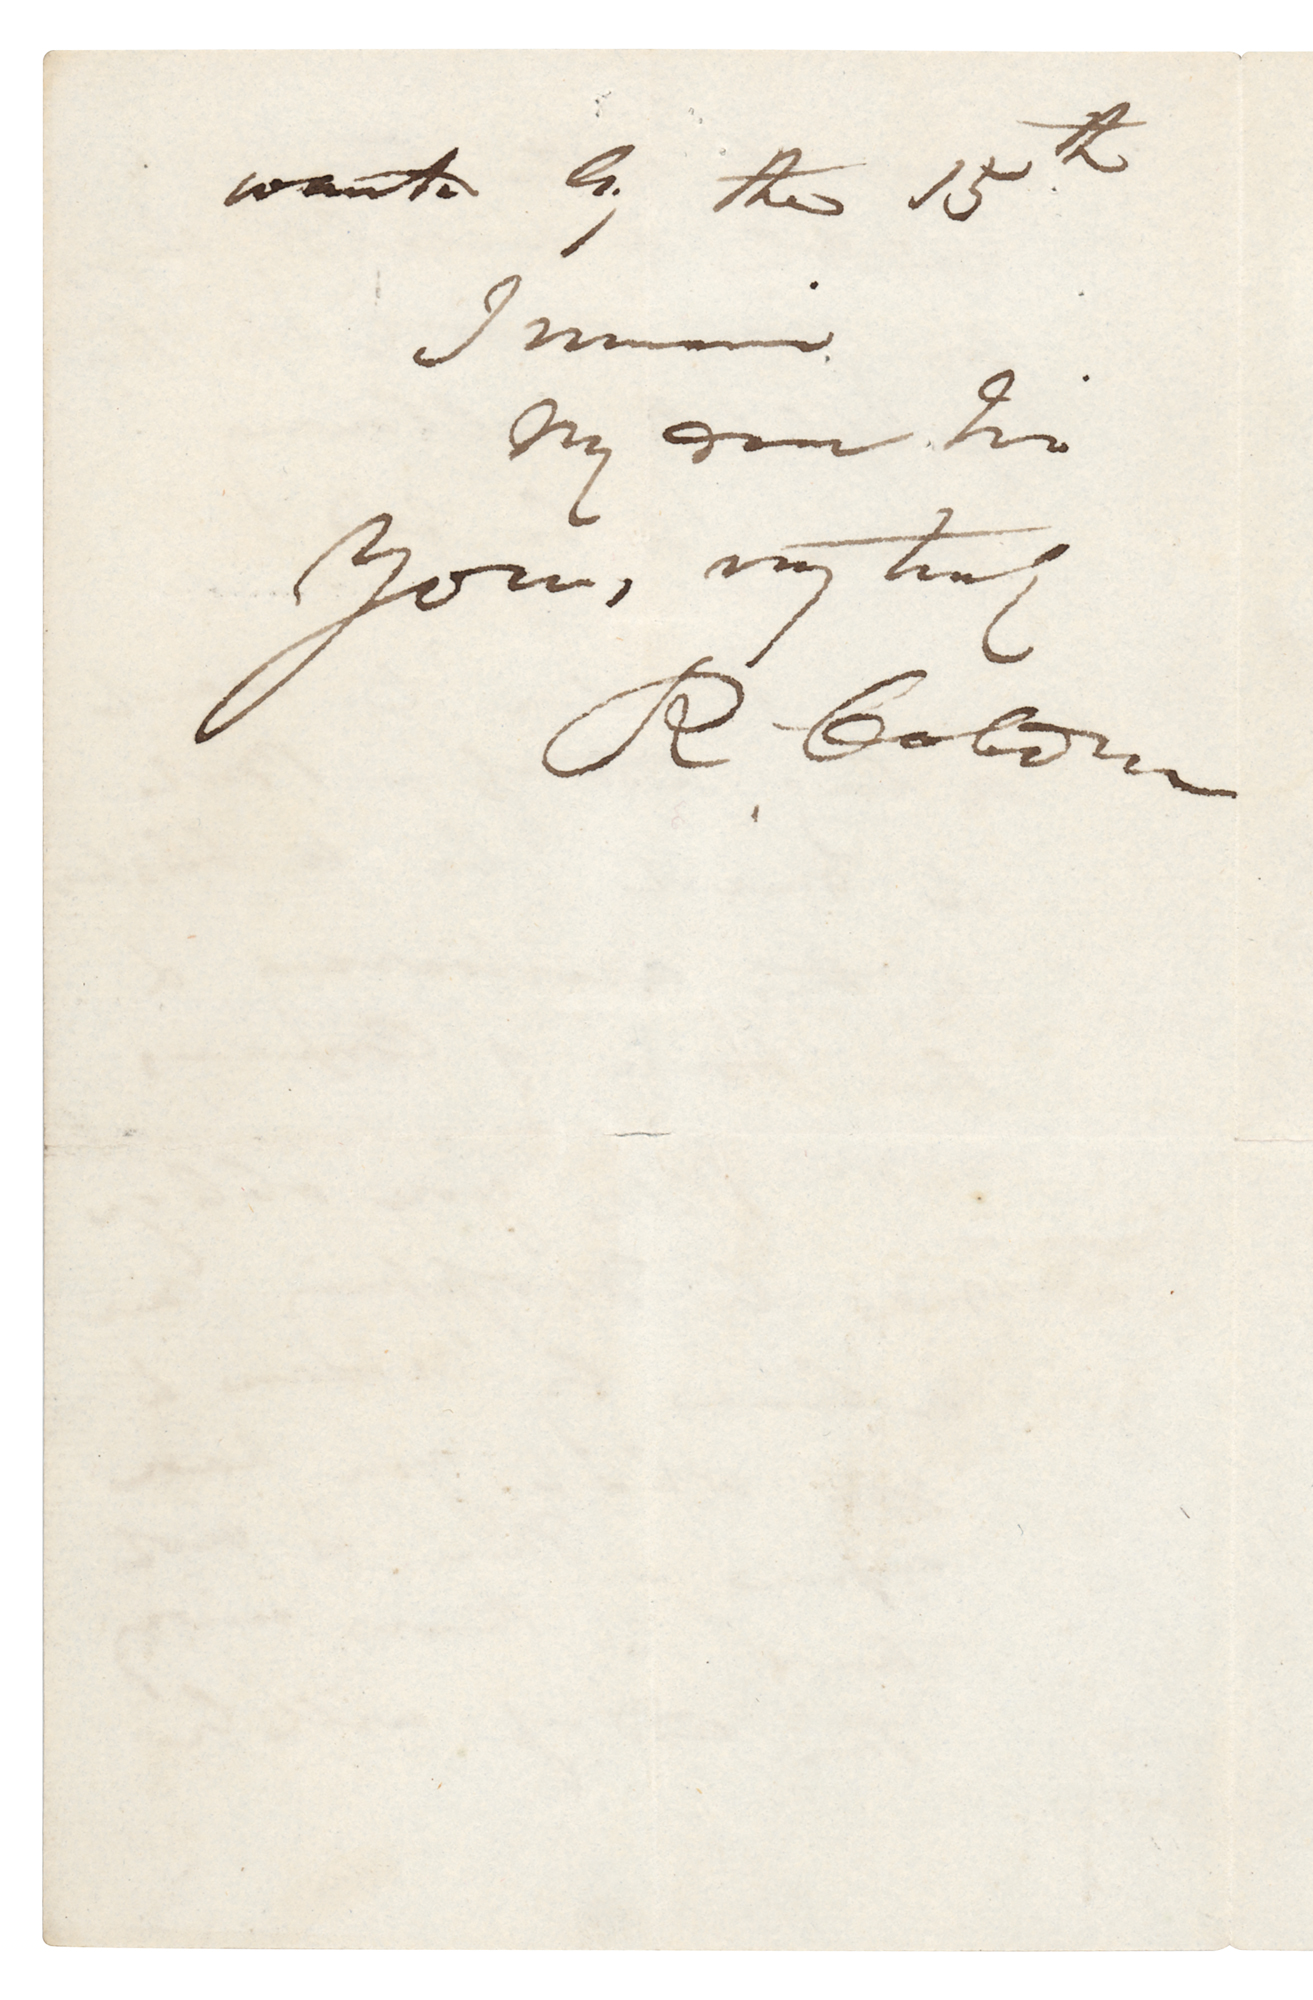 wants by the 15th
I remain
My dear Sir
Yours, very truly
R Cobden